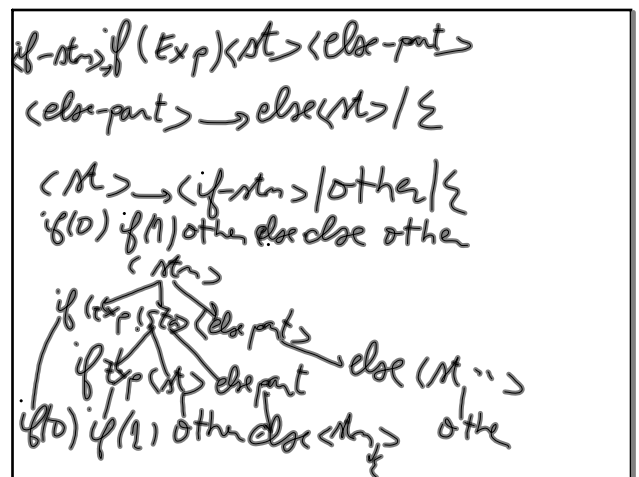 if-stm> → if (Exp) <st> <else-part>
<else-part> → else <st> / ε
<st> → <if-stm> / other / ε
if(0) if(1) other else else other
<stm>
if (Exp) <st> <else part>
if Exp <st> else part else <st..>
if(0) if(1) other else <stm> othe
ε